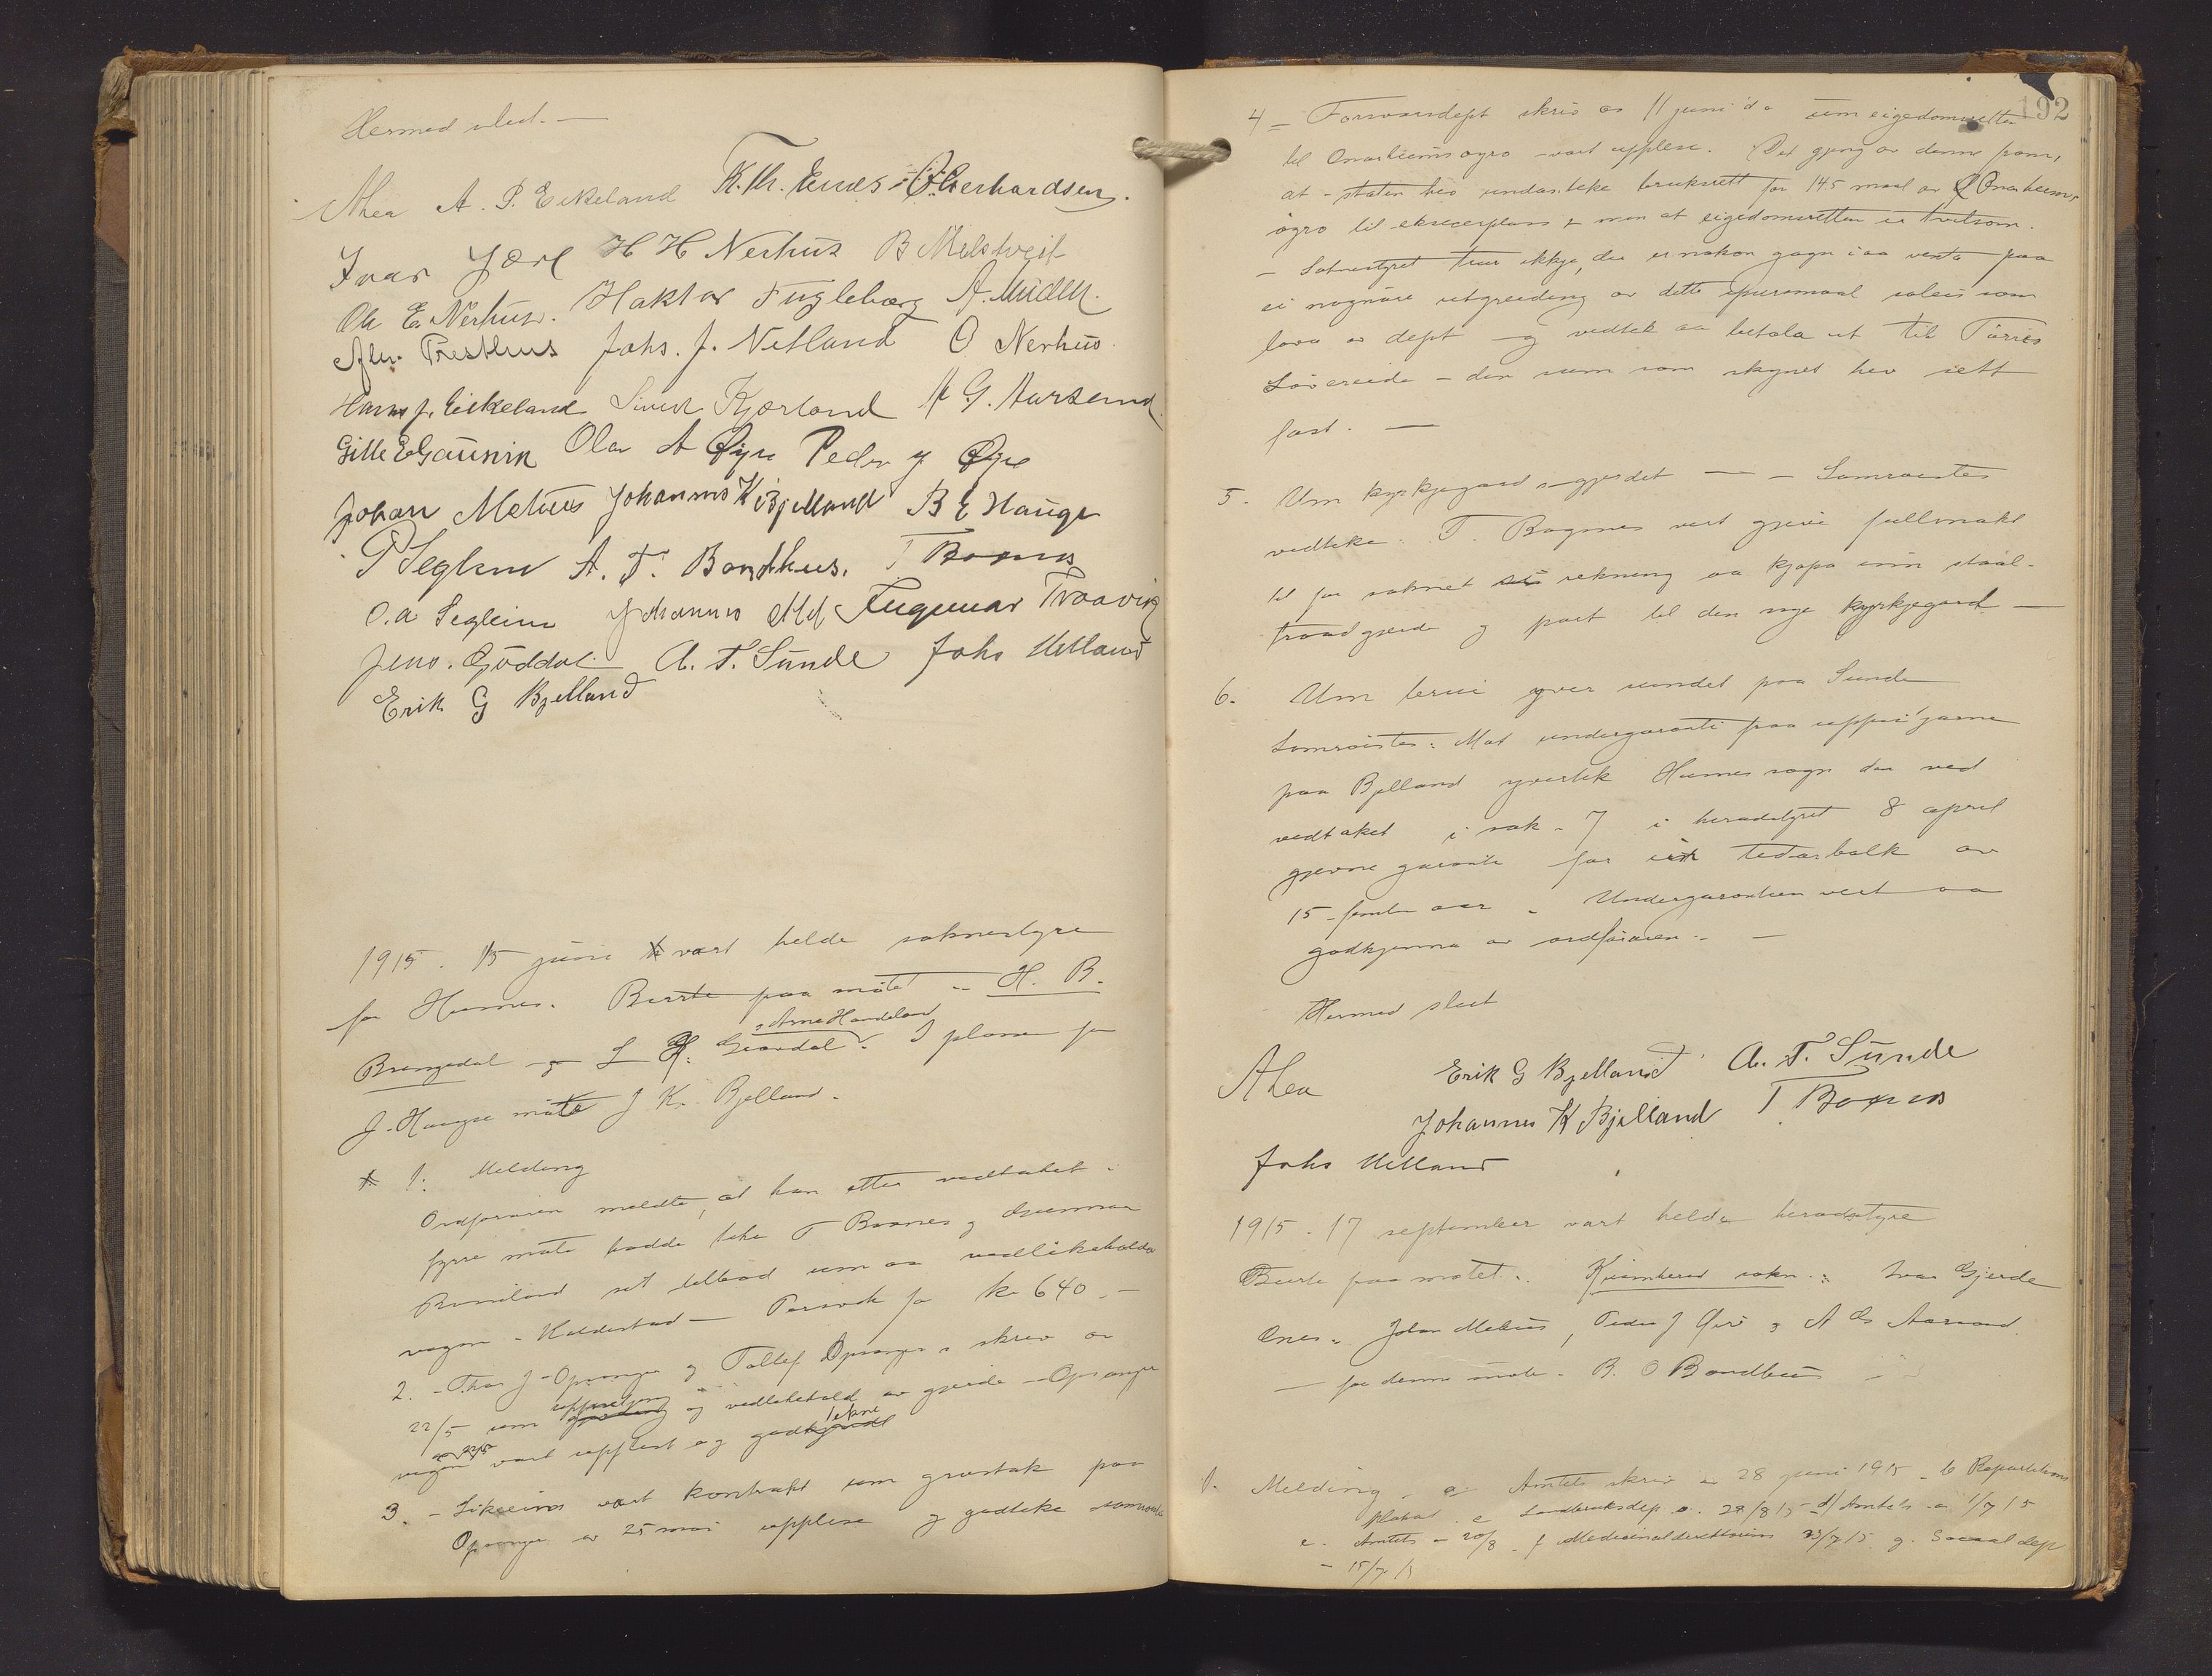 Hermed slut. —
Ahea A. P. Eikeland K. Th. Enæs O. Gerhardsen.
Ivar Jørl H H Nerhus B Melstveit
Ola E. Nerhus. Haktor Fugleberg A. Midttl.
Presthus Johs. J. Netland O Nerhus
Hans J. Eikeland Sivert Kjærland A G. Aursand
Gitle E Gaunin Ola A Øyre Peder J Øyre
Johan Mehus Johannes K Bjelland B E Hauge
P Seglem A. T. Bondhus. T Baones
O. A Segleim Johannes Ingemar Traavik
Jens. Guddal A. T. Sunde Johs Helland
Erik G Bjelland
1915. 15 juni vart helde soknestyre
for Husnes. Burte paa møte - H. B.
Brangedal og L H. Gravdal. I plasen for
og Arne Handeland
J. Hauge møtte J K. Bjelland.
1. Melding
Ordføraren meldte, at han etter vedtaket i
fyrre møte hadde teke T Baones og Gunnar
Rimeland sit tilbod um aa vedlikeholda
vegen - Haldestad - Porsvik for kr 640.-
2. - Thor J. Opsanger og Tollef Opsanger s skriv av
22/5 um uppsetjing og vedlikehald av gjerde - Opsanger
vegen vart upplest og godtekne
av 23/5
3. - Likeeins vart kontrakt um grustak paa
Opsanger av 25 mai upplese og godteke samrøystes
192
4 - Forsvarsdept skriv av 11 juni d. a um eigedomsretten
til Onarheimsøyro - vart upplese. Det gjeng av denne fram,
at - staten hev undanteke bruksrett for 145 maal av Onarheims
øyro til eksecerplass & men at eigedomsretten er tvilsom.
- Soknestyret trur ikkje, der er nokon gagn i aa venta paa
ei nøgnare utgreiding av dette spursmaal soleis som
lova av dept - og vedtek aa betala ut til Tørris
Løvereide - den sum som skynet hev sett
fast. —
5. Um kyrkjegard s-gjerdet — - Samrøystes
vedteke. T. Baoznes vert gjeve fullmakt
til for soknet si rekning aa kjøpa inn staal-
traadgjerde og port til den nye kyrkjegard —
6. Um brui yver sundet paa Sunde
Samrøystes: Mot undergaranti fraa uppsitjarne
paa Bjelland yvertek Husnes sogn den ved
vedtaket i sak - 7 i heradstyret 8 april
gjevne garanti for eit tidarbolk av
15 - femten aar. Undergarantien vert aa
godkjenna av ordføraren. —
Hermed slut
Ahea Erik G Bjelland A. T. Sunde
Johannes K Bjelland T Baones
Johs Helland
1915. 17 september vart helde heradstyre
Burte paa møtet. Kvinherad sokn: Ivar Gjerde
Ænes: Johan Mehus, Peder J Øyre og A G Aarsand
— for denne møtte. B. O Bondhus
1. Melding. a. Amtets skriv av 28 juni 1915 - b Repartitions
plakat. c Landbruksdep a. 28/8 15 - d/ Amtets a. 1/7 15
e. Amtets - 20/8 - f Medisinaldirektøren 23/7 15 g. Sosialdep
- 15/7 15